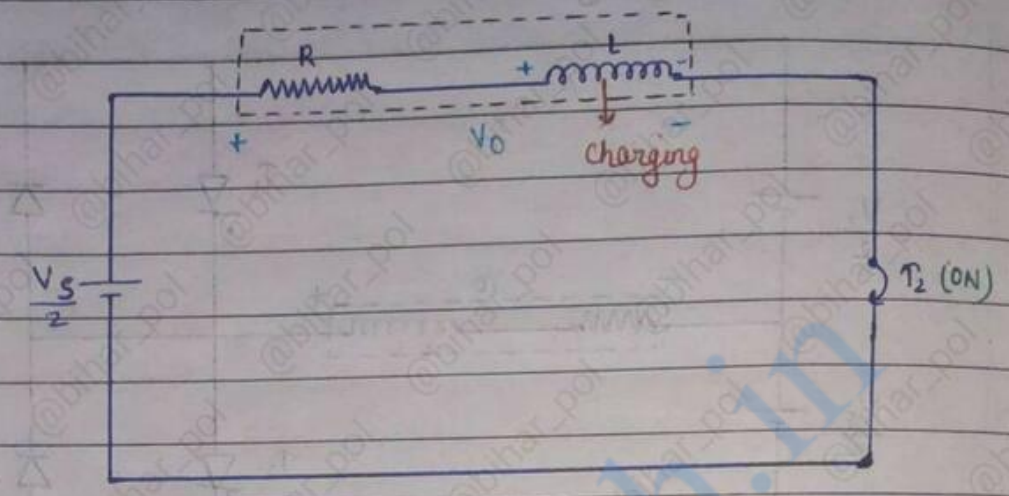 R
L
+
+ V0 -
Charging
VS/2
T2 (ON)
@bihar_pol
h.in